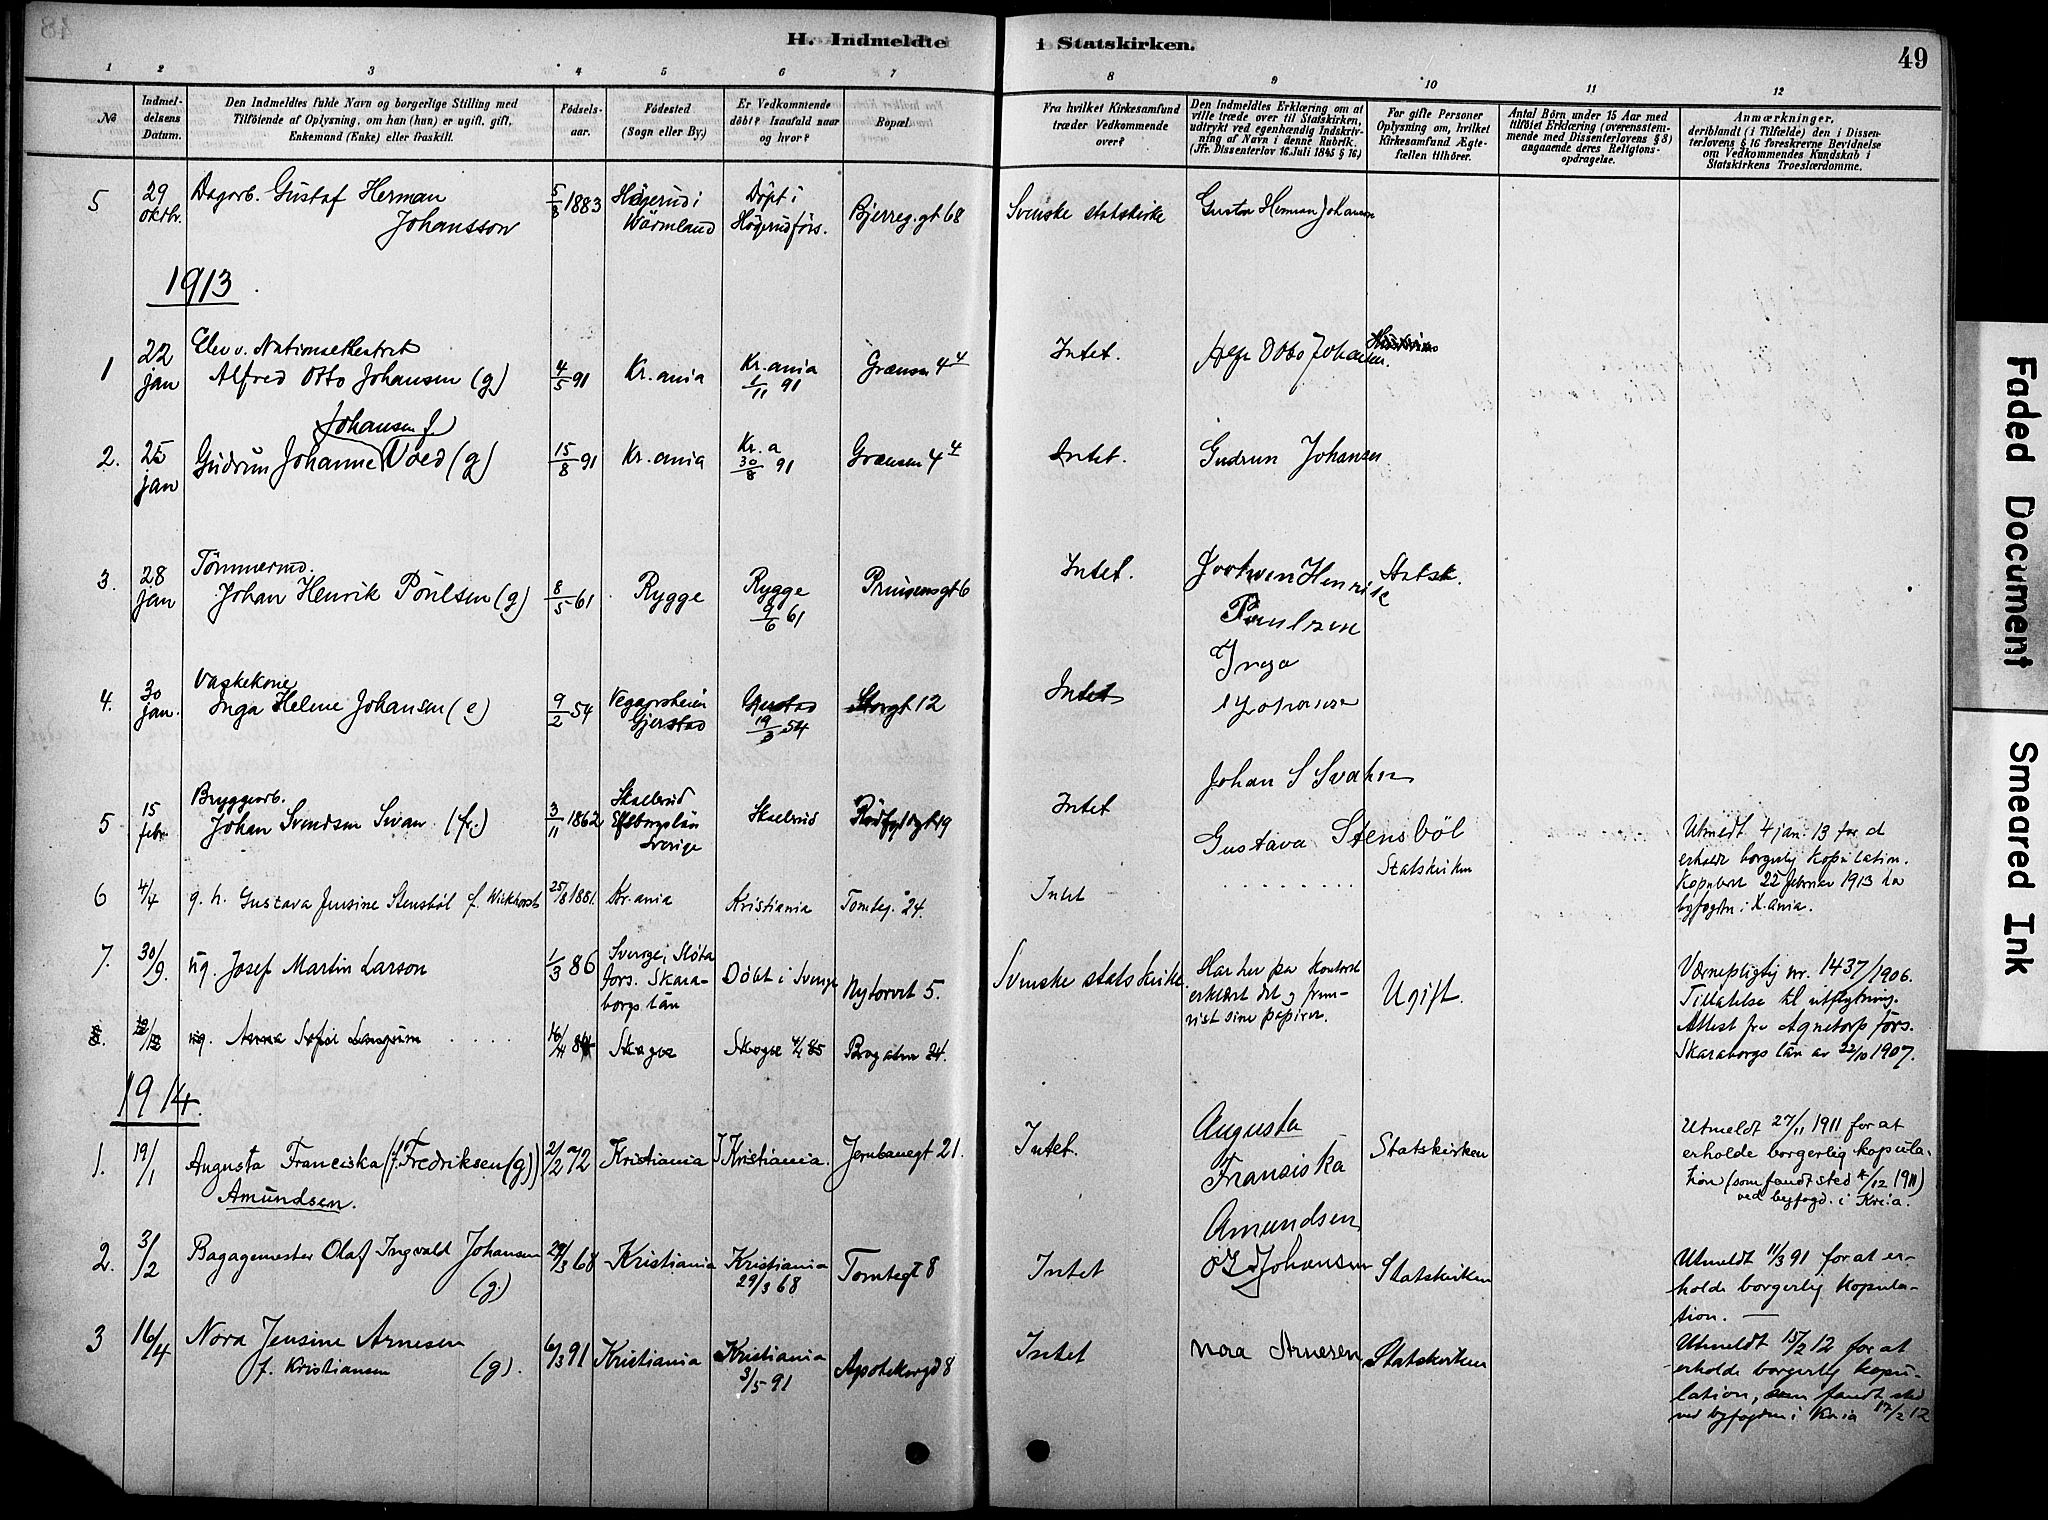 H. Indmeldte i Statskirken.
49
1 2 3 4 5 6 7 8 9 10 11 12
№
Indmel-
delsens
Datum.
Den Indmeldtes fulde Navn og borgerlige Stilling med
Tilföiende af Oplysning, om han (hun) er ugift, gift,
Enkemand (Enke) eller fraskilt.
Födsels-
aar.
Födested
(Sogn eller By.)
Er Vedkommende
döbt? Isaafald naar
og hvor?
Bopæl.
Fra hvilket Kirkesamfund
træder Vedkommende
over?
Den Indmeldtes Erklæring om at
ville træde over til Statskirken,
udtrykt ved egenhændig Indskriv-
ning af Navn i denne Rubrik.
(Jfr. Dissenterlov 16. Juli 1845 § 16)
For gifte Personer
Oplysning om, hvilket
Kirkesamfund Ægte-
fællen tilhörer.
Antal Börn under 15 Aar med
tilföiet Erklæring (overensstem-
mende med Dissenterlovens § 8)
angaaende deres Religions-
opdragelse.
Anmærkninger,
deriblandt (i Tilfælde) den i Dissen-
terlovens § 16 foreskrevne Bevidnelse
om Vedkommendes Kundskab i
Statskirkens Troeslærdomme.
5
29
oktbr.
Dagarb. Gustaf Herman
Johansson
5/3 1883
Högerud i
Wärmland
Döpt i
Högerud förs.
Bjerreg.gt 68
Svenske statskirke
Gustav Herman Johansen
1913
1
22
jan
Elev v. Nationaltheatret
Alfred Otto Johansen (g)
4/5 91
Kr.ania
Kr.ania
1/11 91
Grænsen 4 4
Intet.
Alfr Otto Johansen.
2.
25
jan
Johansen f.
Gudrun Johanne Voed (g)
15/8 91
Kr.ania
Kr.a
30/8 91
Grænsen 4 4
Intet.
Gudrun Johansen
3.
28
jan
Tömmermd.
Johan Henrik Poulsen (g)
8/5 61
Rygge
Rygge
9/6 61
Prinsensgt 6
Intet.
Henrik
Paulsen
Statsk.
4.
30
jan.
Vaskekone
Inga Helene Johansen (e)
9/2 54
Vegaarsheien
Gjerstad
Gjerstad
19/3 54
Storgt 12
Intet
Inga
Johansen
5
15
febr.
Bryggearb.
Johan Svendsen Svan (fr.)
3/11 1862
Skallerud
Elfsborgslän
Sverige
Skallerud
Rödfyldgt 19
Intet
Johan S Svahn
6
4/4
g. h. Gustava Jensine Stensböl f. Wickhorst
25/8 1881.
Kr.ania
Kristiania
Tomteg. 24.
Intet
Gustava Stensböl
Statskirken
Utmeldt 4 jan. 13 for at
erholde borgerlig kopulation.
Kopulert 22 februar 1913 hos
byfogden i K.ania.
7.
30/9.
ug. Josef Martin Larson
1/3 86
Sverge, Slöta
förs. Skara-
borgs län
Döbt i Sverige
Nytorvet 5.
Svenske statskirke.
Har her på kontoret
erklært det og frem-
vist sine papirer.
Ugift.
Værnepligtig nr. 1437/1906.
Tillatelse til utflytning.
Attest fra Agnetorp förs.
Skaraborgs län av 22/10 1907.
8.
ug. Anna Sofie
16/11 84
1914.
1.
19/1
Augusta Franciska (f. Fredriksen (g))
Amundsen.
21/2 72
Kristiania
Kristiania.
Jernbanegt 21.
Intet.
Augusta
Fransiska
Amundsen
Statskirken
Utmeldt 27/11 1911 for at
erholde borgerlig kopula-
tion (som fandt sted /12 1911)
ved byfogd. i Kr.ia.
2.
3/2
Bagagemester Olaf Ingvald Johansen
(g.)
/3 68
Kristiania
Kristiania
29/3 68
Tomtegt 8
Intet
O I Johansen
Statskirken
Utmeldt 11/3 91 for at er-
holde borgerlig kopula-
tion. —
3
16/4
Nora Jensine Arnesen
f. Kristiansen (g).
6/3 91
Kristiania
Kristiania
3/5 91
Apotekergd 8
Intet
Nora Arnesen
Statskirken
Utmeldt 15/2 12 for at
erholde borgerlig kopu-
lation, som fandt sted
ved byfogden i Kria 17/2 12
Faded Document
Smeared Ink